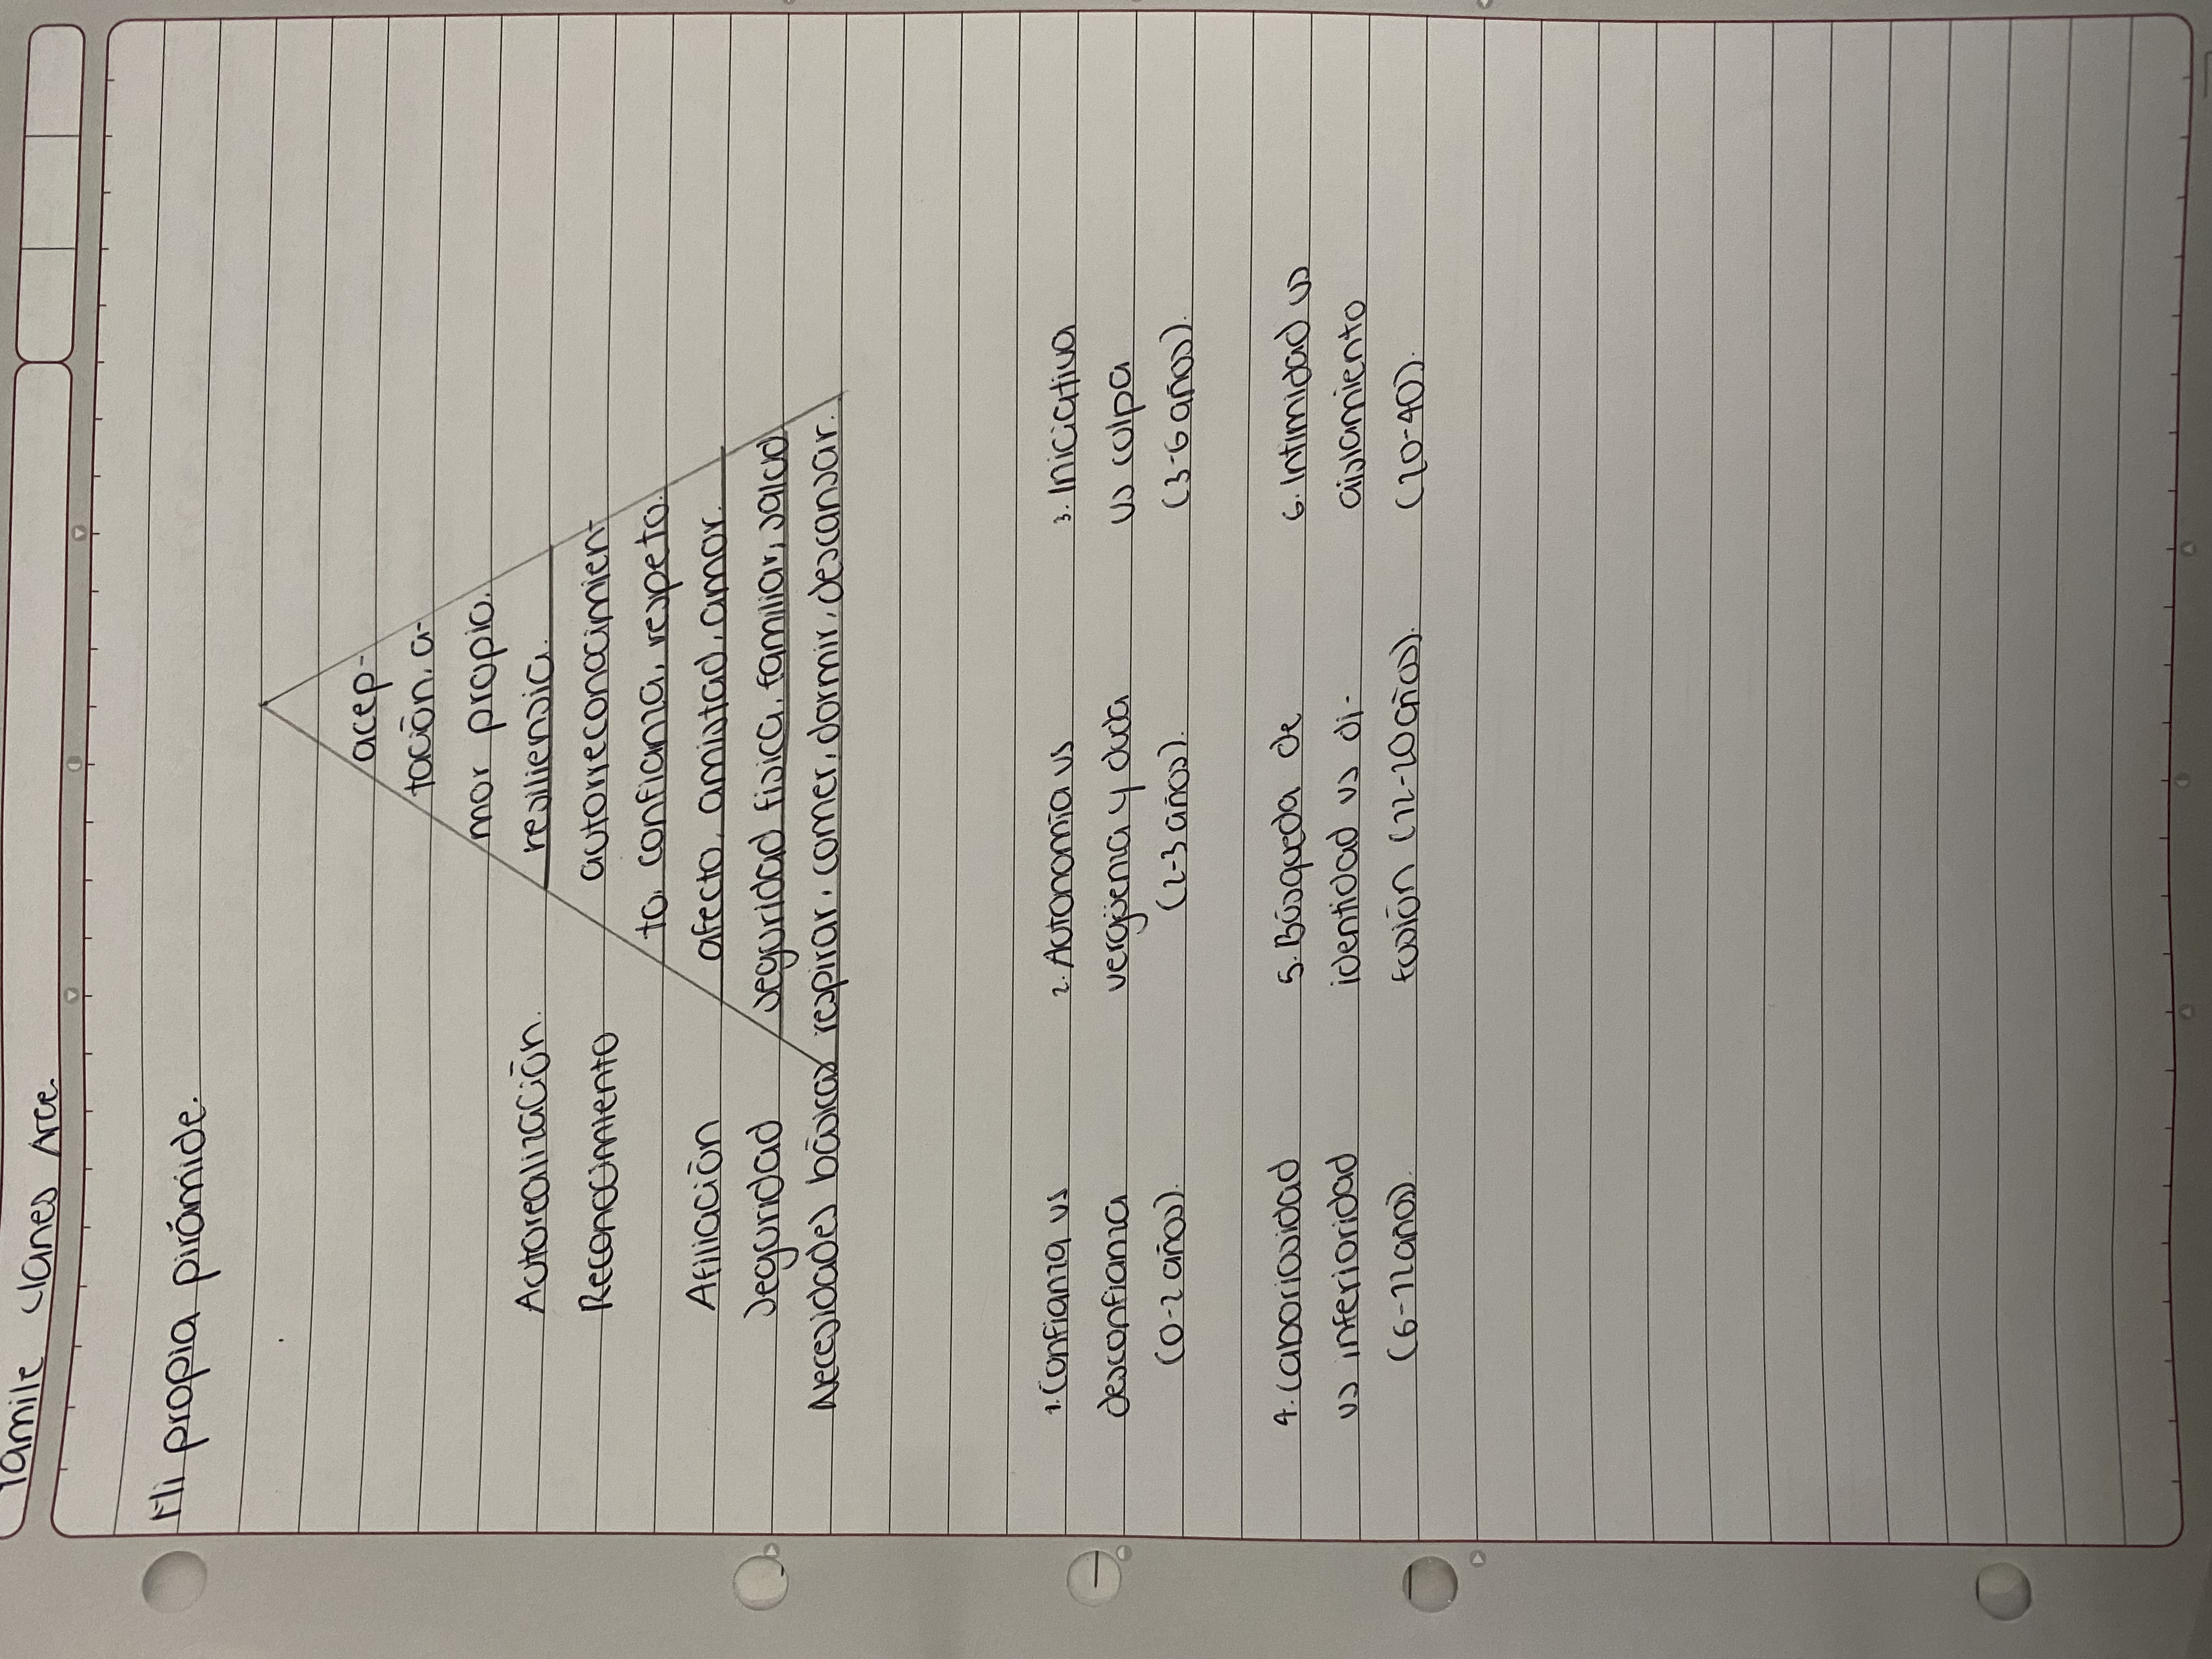 Yamile Llanes Arce.
Mi propia pirámide.
acep-
tación, a-
mor propio,
Autorealización. resiliensia.
Reconocimiento autorreconocimien-
to, confianza, respeto.
Afiliación afecto, amistad, amor.
Seguridad seguridad fisica, familiar, salud
Necesidades básicas respirar, comer, dormir, descansar.
1. Confianza vs
desconfianza
(0-2 años).
2. Autonomía vs
vergüenza y duda
(2-3 años).
3. Iniciativa
vs culpa
(3-6 años).
4. Laboriosidad
vs inferioridad
(6-12 años).
5. Búsqueda de
identidad vs di-
fusión (12-20 años).
6. Intimidad vs
aislamiento
(20-40).